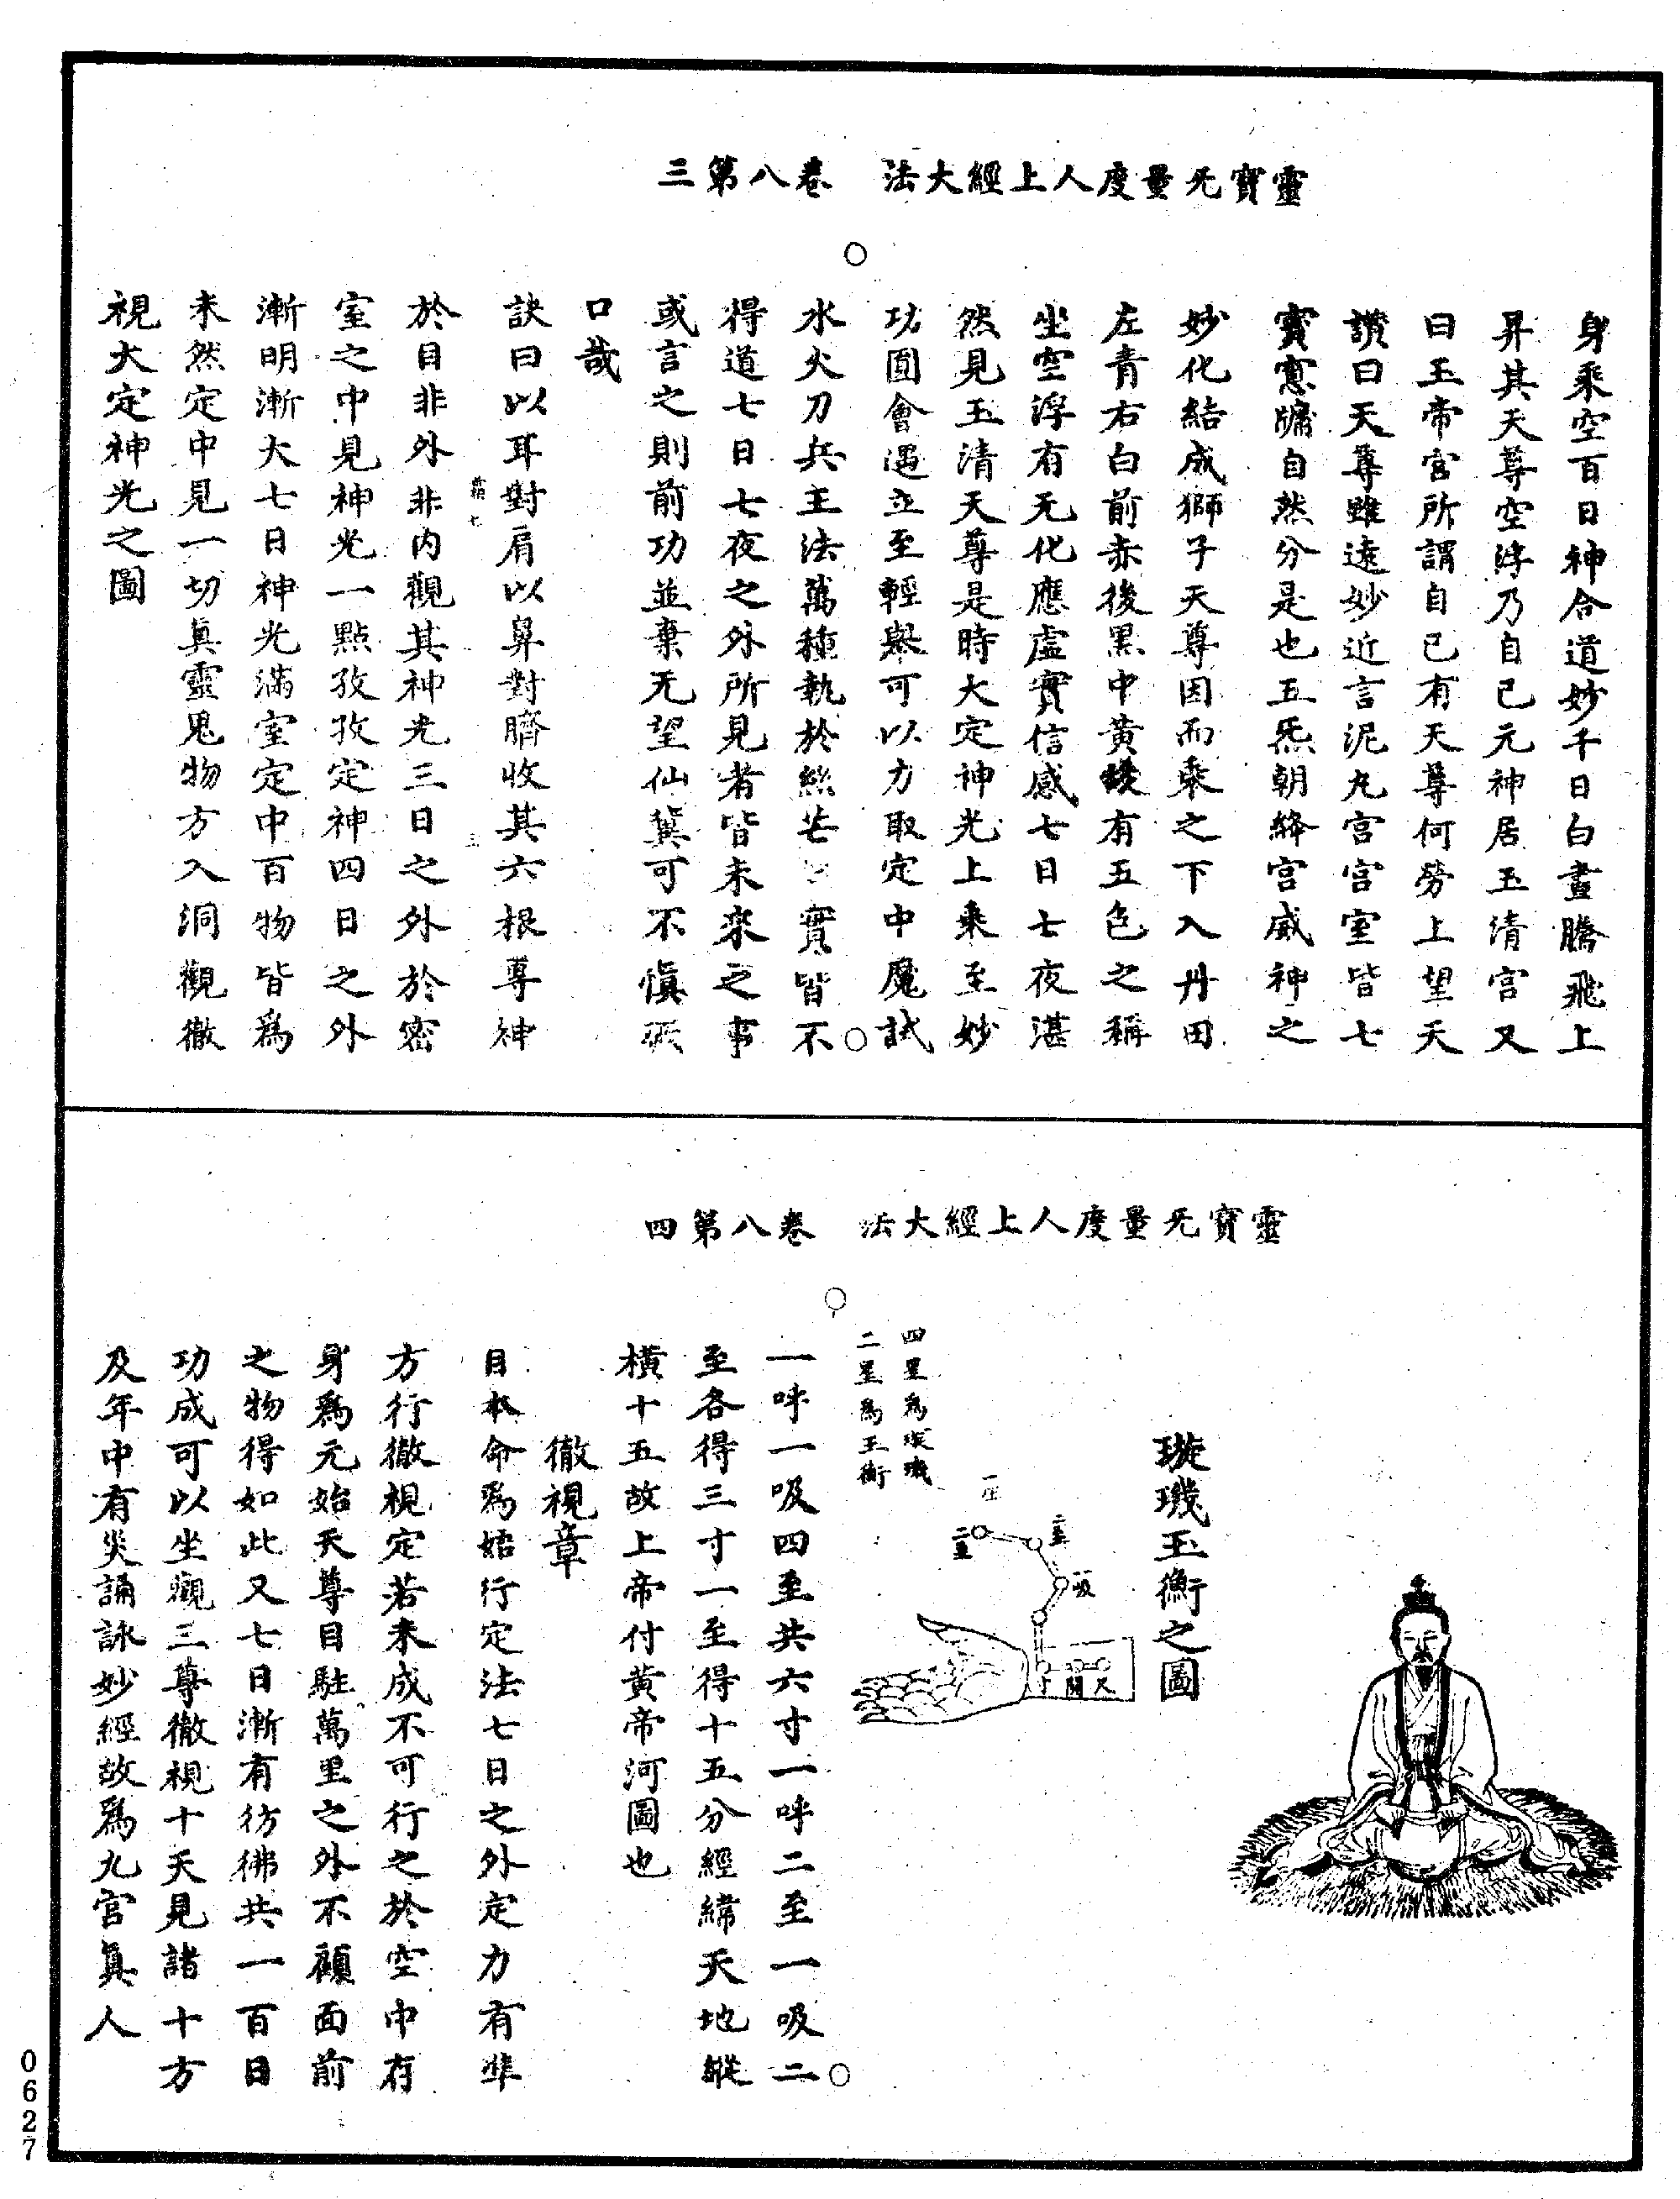 靈寶无量度人上經大法　卷八第三
身乘空百日神合道妙千日白晝騰飛上
昇其天尊空浮乃自己元神居玉清宫又
曰玉帝宫所謂自已有天尊何勞上望天
讚曰天尊雖遠妙近言泥丸宫宫室皆七
寶窻牖自然分是也五炁朝絳宫威神之
妙化結成獅子天尊因而乘之下入丹田
左青右白前赤後黑中黄故有五色之稱
坐空浮有无化應虚實信感七日七夜湛
然見玉清天尊是時大定神光上乘至妙
功圓會遇立至輕舉可以力取定中魔試
水火刀兵主法萬種執於絲芒實皆不
得道七日七夜之外所見者皆未來之事
或言之則前功並棄无望仙冀可不慎
口哉
訣曰以耳對肩以鼻對臍收其六根尊神
於目非外非内觀其神光三日之外於密
室之中見神光一點孜孜定神四日之外
漸明漸大七日神光滿室定中百物皆爲
未然定中見一切眞靈鬼物方入洞觀徹
視大定神光之圖
靈寶无量度人上經大法　卷八第四
璇璣玉衡之圖
四星爲璇璣
二星爲玉衡
一呼一吸四至共六寸一呼二至一吸二
至各得三寸一至得十五分經緯天地縱
橫十五故上帝付黄帝河圖也
徹視章
目本命爲始行定法七日之外定力有準
方行徹視定若未成不可行之於空中存
身爲元始天尊目駐萬里之外不顧面前
之物得如此又七日漸有彷彿共一百日
功成可以坐觀三尊徹視十天見諸十方
及年中有災誦詠妙經故爲九宫眞人
0627